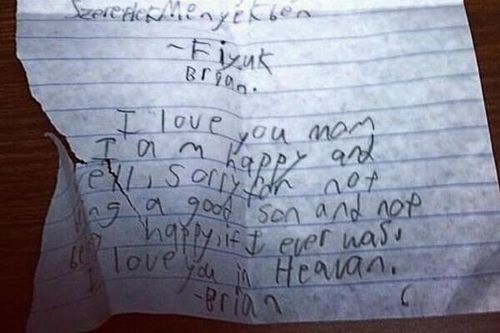 Szeretlek Menyékben
~Fiyuk
Brian.
I love you mom
I am happy and
ell, sorry for not
ng a good son and not
happy, if I ever was.
I love you in Heavan.
-Brian